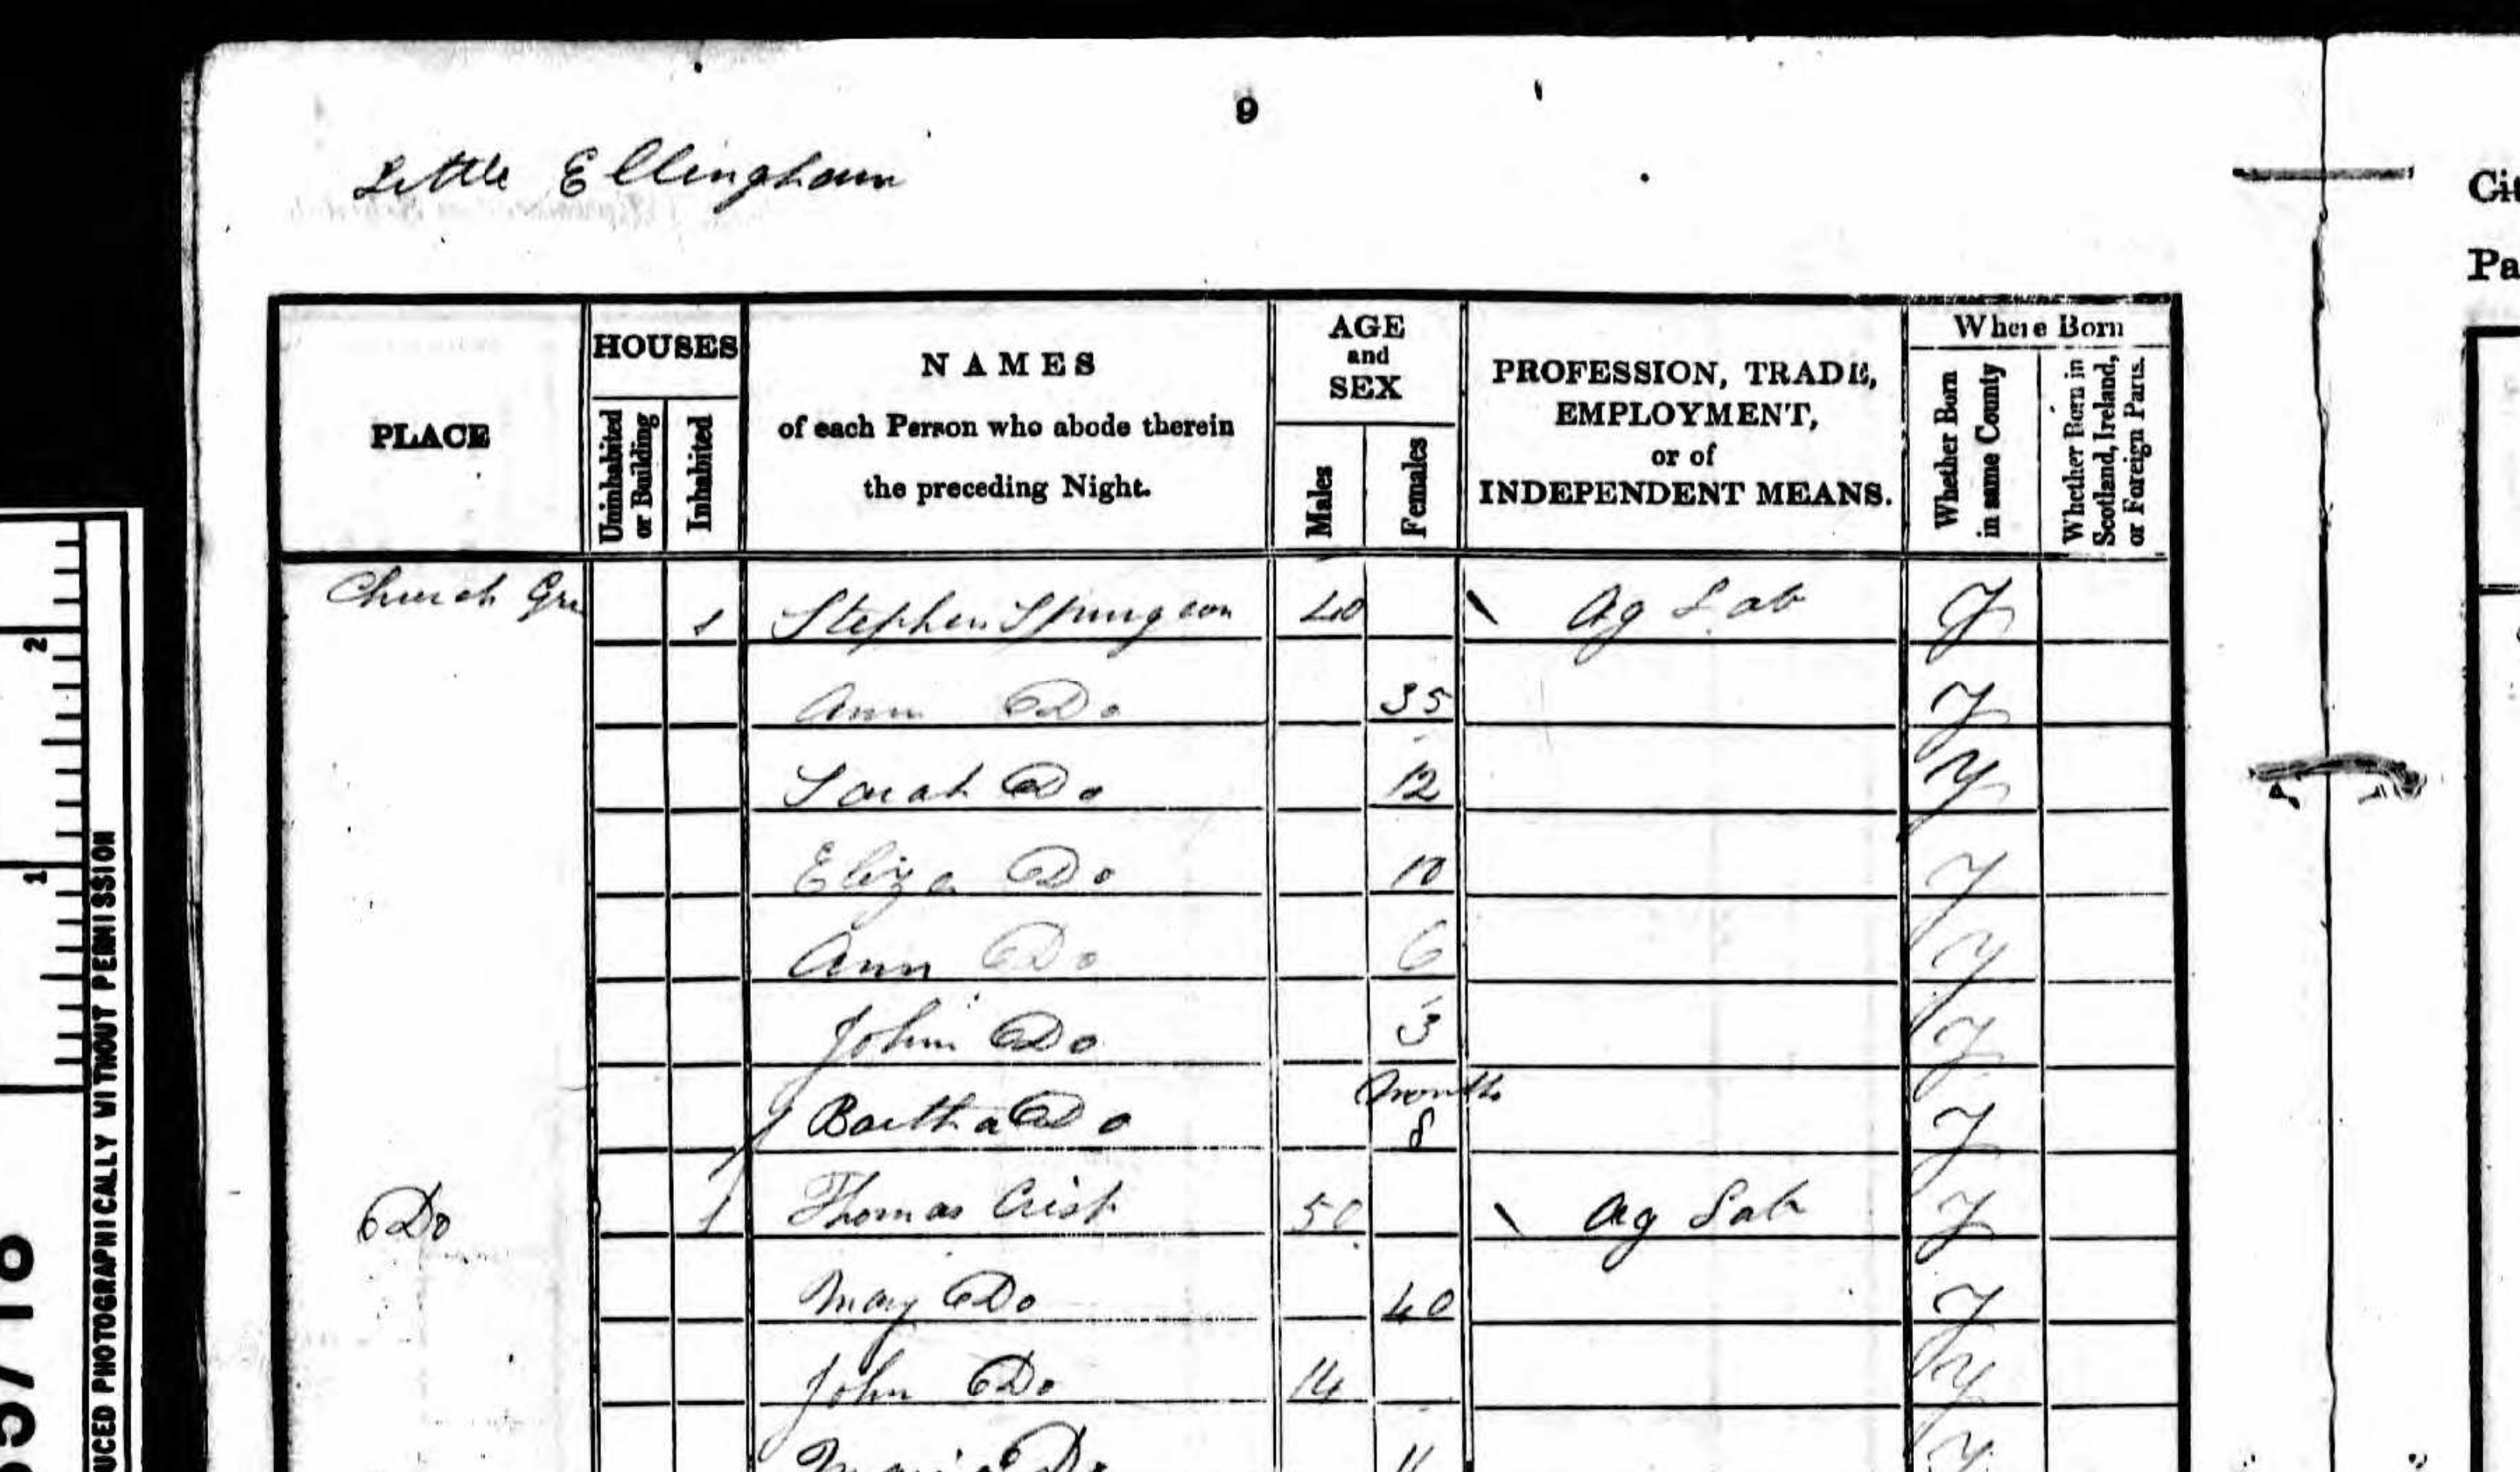 9
Little Ellingham
Cit
Pa
PLACE
HOUSES
Uninhabited or Building
Inhabited
NAMES
of each Person who abode therein
the preceding Night.
AGE
and
SEX
Males
Females
PROFESSION, TRADE,
EMPLOYMENT,
or of
INDEPENDENT MEANS.
Where Born
Whether Born in same County
Whether Born in Scotland, Ireland, or Foreign Parts.
Church Gre 1 Stephen Spurgeon 40 Ag Lab Y
Ann Do 35 Y
Sarah Do 12 Y
Eliza Do 10 Y
Ann Do 6 Y
John Do 3 Y
Bartha Do months 8 Y
Do 1 Thomas Crisp 50 Ag Lab Y
Mary Do 40 Y
John Do 14 Y
Maria Do 11 Y
2
1
UCED PHOTOGRAPHICALLY WITHOUT PERMISSION